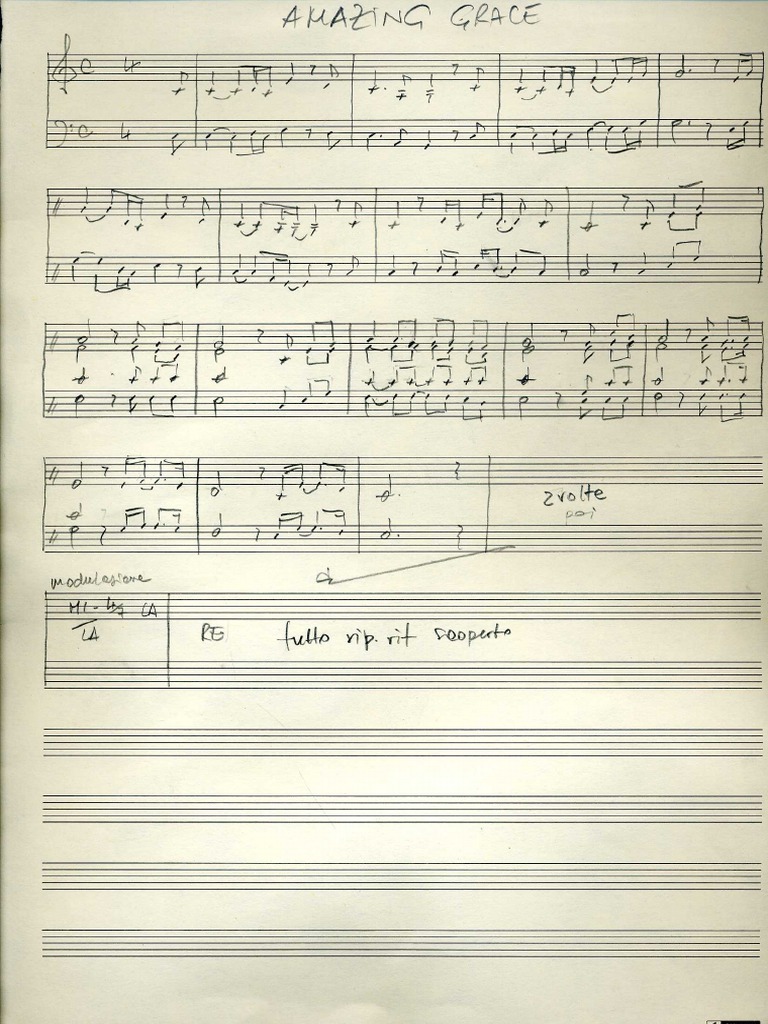 AMAZING GRACE
4
4
2 volte
poi
modulazione
MI-
LA
LA
RE
tutto rip. rit scoperto